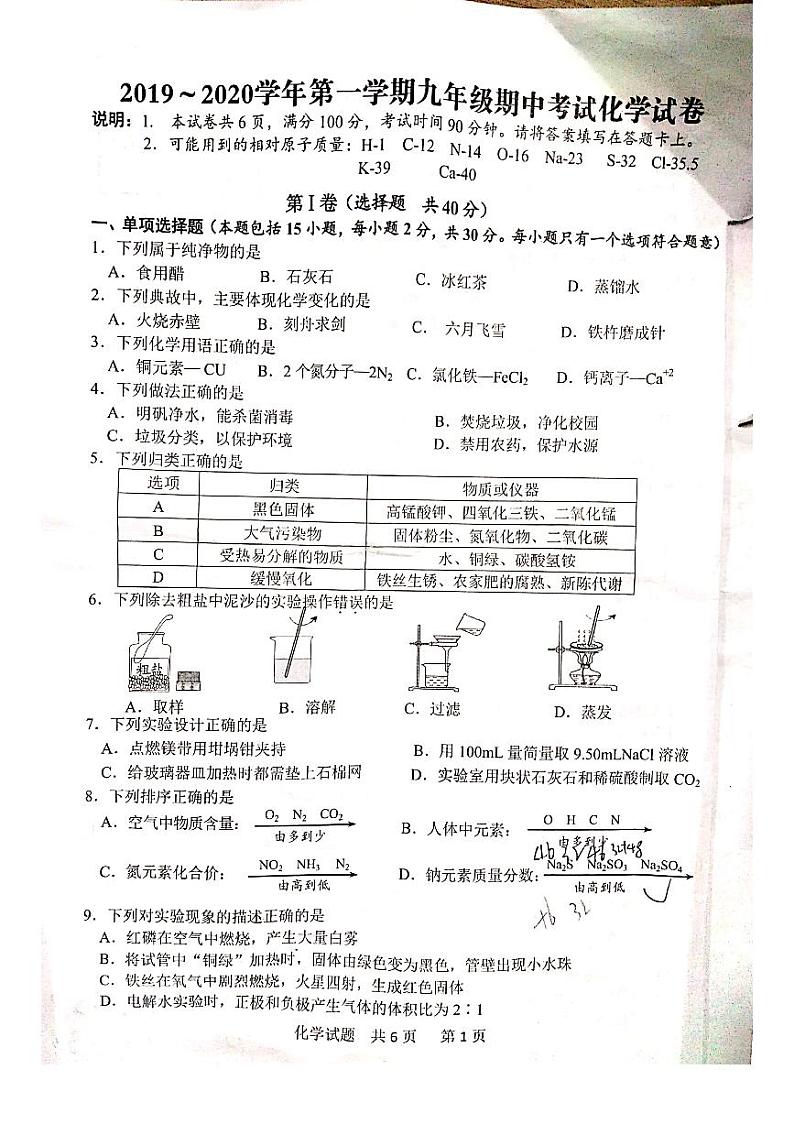 2019～2020学年第一学期九年级期中考试化学试卷
说明：1. 本试卷共6页，满分100分，考试时间90分钟。请将答案填写在答题卡上。
2. 可能用到的相对原子质量：H-1 C-12 N-14 O-16 Na-23 S-32 Cl-35.5
K-39 Ca-40
第I卷（选择题 共40分）
一、单项选择题（本题包括15小题，每小题2分，共30分。每小题只有一个选项符合题意）
1. 下列属于纯净物的是
A. 食用醋 B. 石灰石 C. 冰红茶 D. 蒸馏水
2. 下列典故中，主要体现化学变化的是
A. 火烧赤壁 B. 刻舟求剑 C. 六月飞雪 D. 铁杵磨成针
3. 下列化学用语正确的是
A. 铜元素—CU B. 2个氮分子—2N₂ C. 氯化铁—FeCl₂ D. 钙离子—Ca⁺²
4. 下列做法正确的是
A. 明矾净水，能杀菌消毒 B. 焚烧垃圾，净化校园
C. 垃圾分类，以保护环境 D. 禁用农药，保护水源
5. 下列归类正确的是
选项 归类 物质或仪器
A 黑色固体 高锰酸钾、四氧化三铁、二氧化锰
B 大气污染物 固体粉尘、氮氧化物、二氧化碳
C 受热易分解的物质 水、铜绿、碳酸氢铵
D 缓慢氧化 铁丝生锈、农家肥的腐熟、新陈代谢
6. 下列除去粗盐中泥沙的实验操作错误的是
粗盐
A. 取样 B. 溶解 C. 过滤 D. 蒸发
7. 下列实验设计正确的是
A. 点燃镁带用坩埚钳夹持 B. 用100mL量筒量取9.50mLNaCl溶液
C. 给玻璃器皿加热时都需垫上石棉网 D. 实验室用块状石灰石和稀硫酸制取CO₂
8. 下列排序正确的是
A. 空气中物质含量： O₂ N₂ CO₂ 由多到少 B. 人体中元素： O H C N 由多到少
C. 氮元素化合价： NO₂ NH₃ N₂ 由高到低 D. 钠元素质量分数： Na₂S Na₂SO₃ Na₂SO₄ 由高到低
9. 下列对实验现象的描述正确的是
A. 红磷在空气中燃烧，产生大量白雾
B. 将试管中“铜绿”加热时，固体由绿色变为黑色，管壁出现小水珠
C. 铁丝在氧气中剧烈燃烧，火星四射，生成红色固体
D. 电解水实验时，正极和负极产生气体的体积比为2∶1
化学试题 共6页 第1页